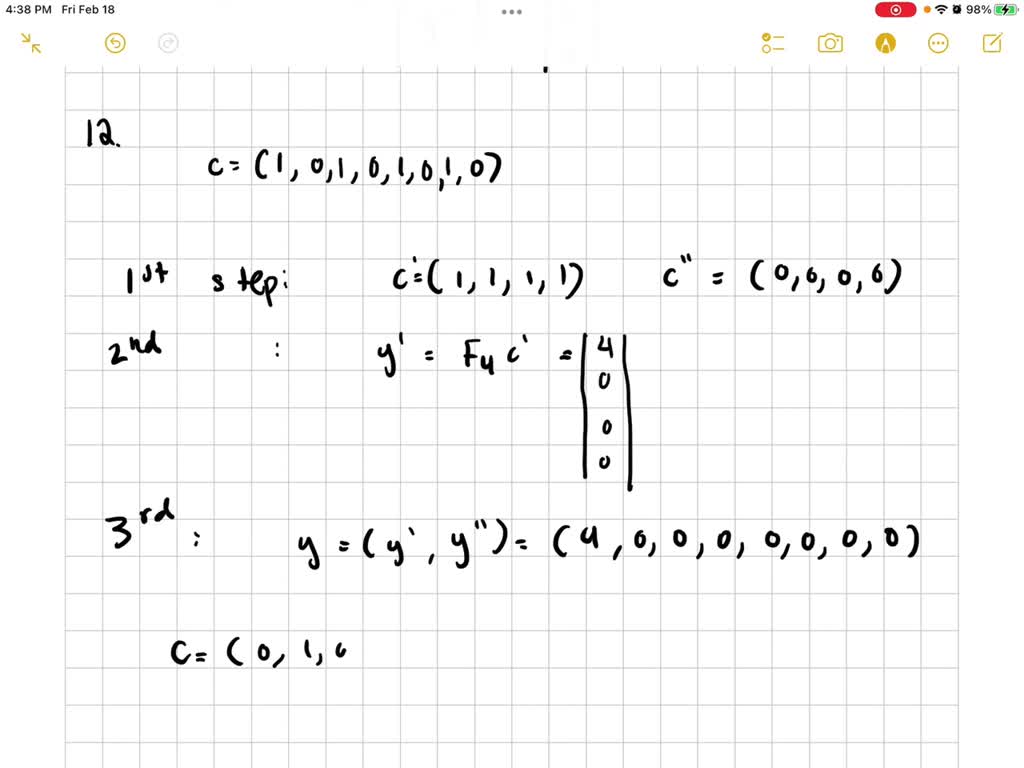 4:38 PM Fri Feb 18 98%
12.
c = (1, 0, 1, 0, 1, 0, 1, 0)
1st step: c' = (1, 1, 1, 1) c" = (0, 0, 0, 0)
2nd : y' = F4 c' = | 4 |
0
0
0
3rd : y = (y', y") = (4, 0, 0, 0, 0, 0, 0, 0)
c = (0, 1, 0